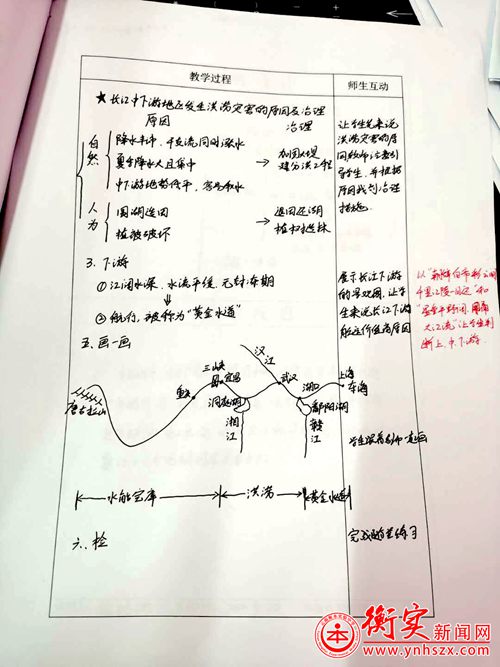 教学过程
师生互动
★长江中下游地区发生洪涝灾害的原因及治理
原因
治理
自然
降水丰沛，干支流同时涨水
夏季降水大且集中
中下游地势低平，容易积水
→加固大堤
建分洪工程
人为
围湖造田
植被破坏
→退田还湖
植树造林
让学生来说
洪涝灾害的原
因，教师注意引
导学生，并根据
原因找到治理
措施。
3.下游
①江阔水深，水流平缓，无封冻期
②航行，被称为“黄金水道”
展示长江下游
的景观图，让学
生来说长江下游
航运价值高原因
以“朝辞白帝彩云间
千里江陵一日还”和
“星垂平野阔，月涌
大江流”让学生判
断上、中、下游。
五.画一画
唐古拉山
重庆
三峡
宜昌
洞庭湖
湘江
汉江
武汉
湖口
鄱阳湖
赣江
上海
东海
学生跟着老师一起画
水能宝库
洪涝
黄金水道
六.检
完成随堂练习
衡实新闻网
www.ynhszx.com